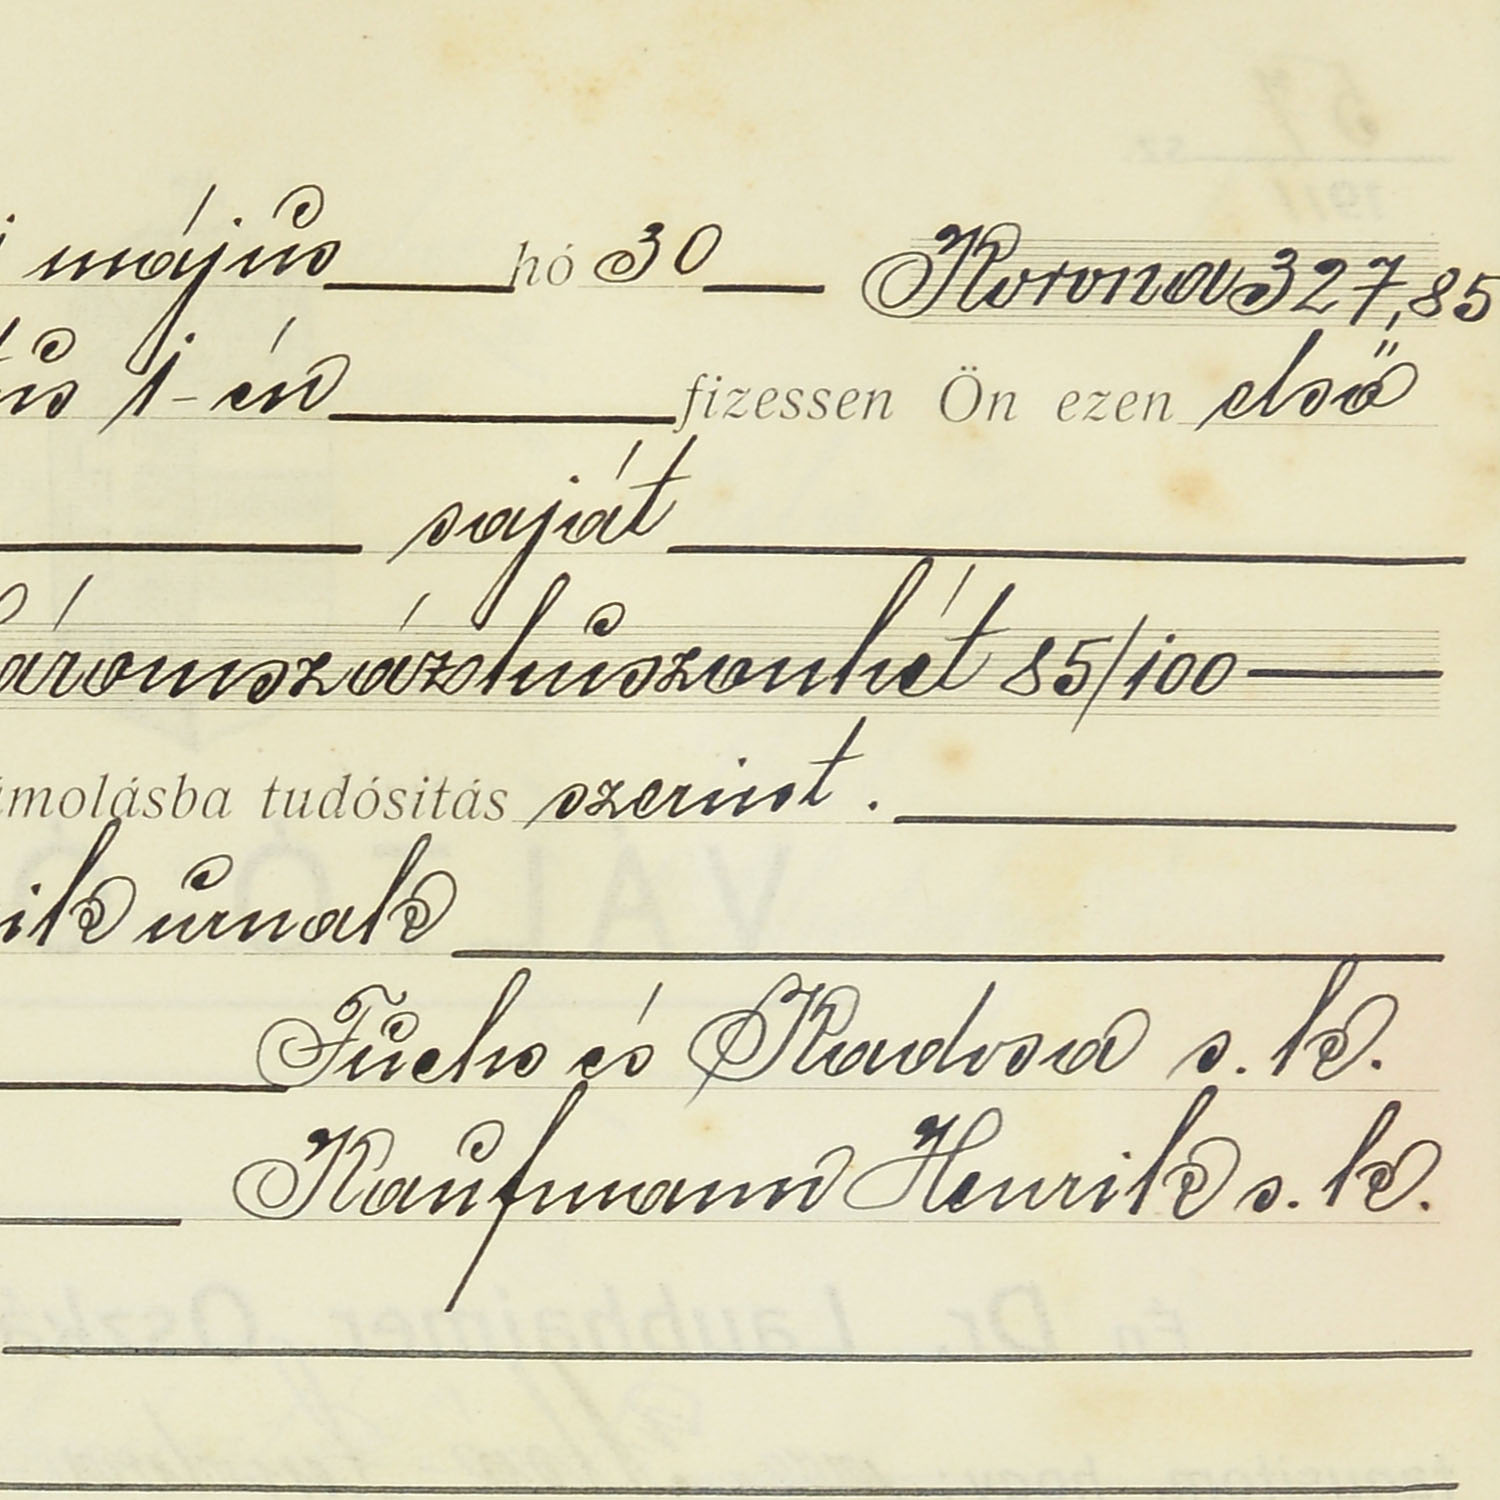 május hó 30 Korona 327,85
1-én fizessen Ön ezen első
saját
áromszázhúszonhét 85/100
ámolásba tudósitás szerint.
ik úrnak
Fuchs és Kadosa s. k.
Kaufmann Henrik s. k.